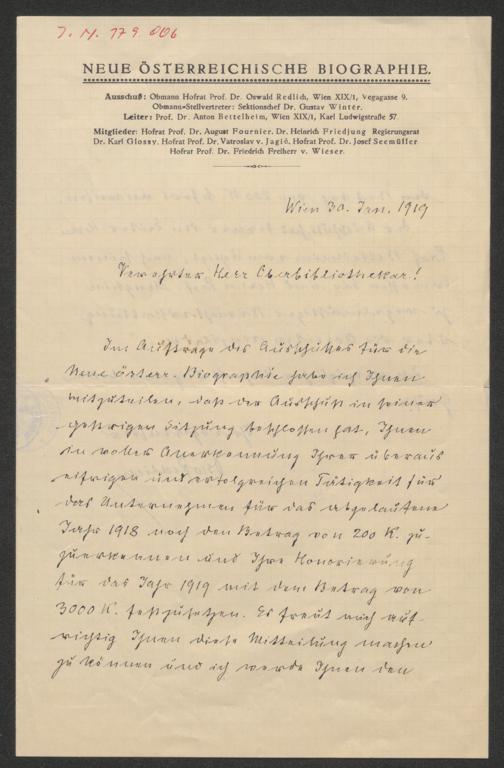 J. N. 179.006
NEUE ÖSTERREICHISCHE BIOGRAPHIE.
Ausschuß: Obmann Hofrat Prof. Dr. Oswald Redlich, Wien XIX/1, Vegagasse 9.
Obmann-Stellvertreter: Sektionschef Dr. Gustav Winter.
Leiter: Prof. Dr. Anton Bettelheim, Wien XIX/1, Karl Ludwigstraße 57.
Mitglieder: Hofrat Prof. Dr. August Fournier. Dr. Heinrich Friedjung Regierungsrat
Dr. Karl Glossy. Hofrat Prof. Dr. Vatroslav v. Jagić. Hofrat Prof. Dr. Josef Seemüller
Hofrat Prof. Dr. Friedrich Freiherr v. Wieser.
Wien 30. Jan. 1919
Verehrter Herr Oberbibliothekar!
Im Auftrage des Ausschusses für die
Neue österr. Biographie habe ich Ihnen
mitzuteilen, daß der Ausschuß in seiner
gestrigen Sitzung beschlossen hat, Ihnen
in voller Anerkennung Ihrer überaus
eifrigen und erfolgreichen Tätigkeit für
das Unternehmen für das abgelaufene
Jahr 1918 noch den Betrag von 200 K. zu-
zuerkennen und Ihre Honorierung
für das Jahr 1919 mit dem Betrag von
3000 K. festzusetzen. Es freut mich auf-
richtig Ihnen diese Mitteilung machen
zu können und ich werde Ihnen den